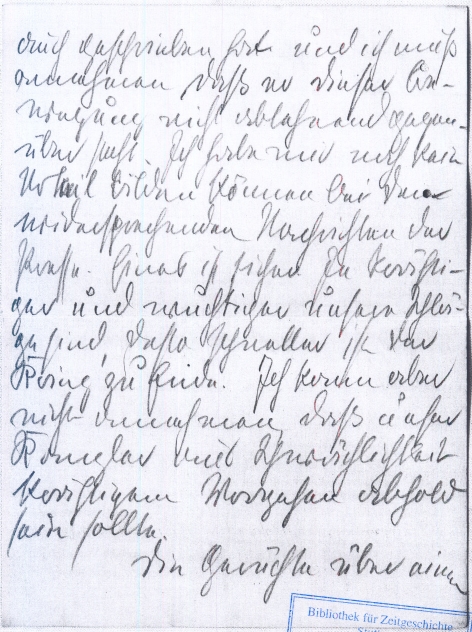 durch geschrieben hat und ich muß
annehmen daß er dieser An-
regung nicht ablehnend gegen-
über steht. Ich habe mir noch kein
Urteil bilden können bei den
widersprechenden Nachrichten der
Presse. Eines ist sicher Je kräfti-
ger und wuchtiger unsere Schlä-
ge sind, desto schneller ist der
Krieg zu Ende. Ich kann aber
nicht annehmen, daß unser
Kanzler mit Schwächlichkeit
kräftigem Vorgehen abhold
sein sollte.
Die Gerüchte über einen
Bibliothek für Zeitgeschichte